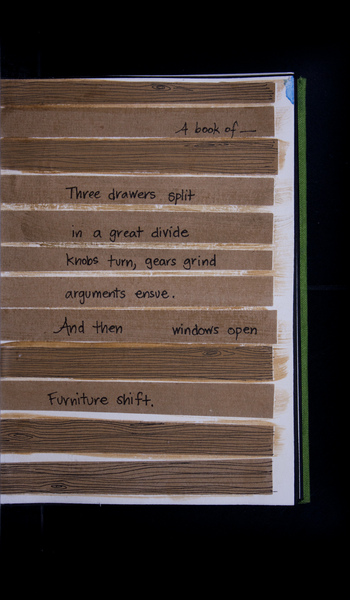 A book of —
Three drawers split
in a great divide
knobs turn, gears grind
arguments ensue.
And then windows open
Furniture shift.